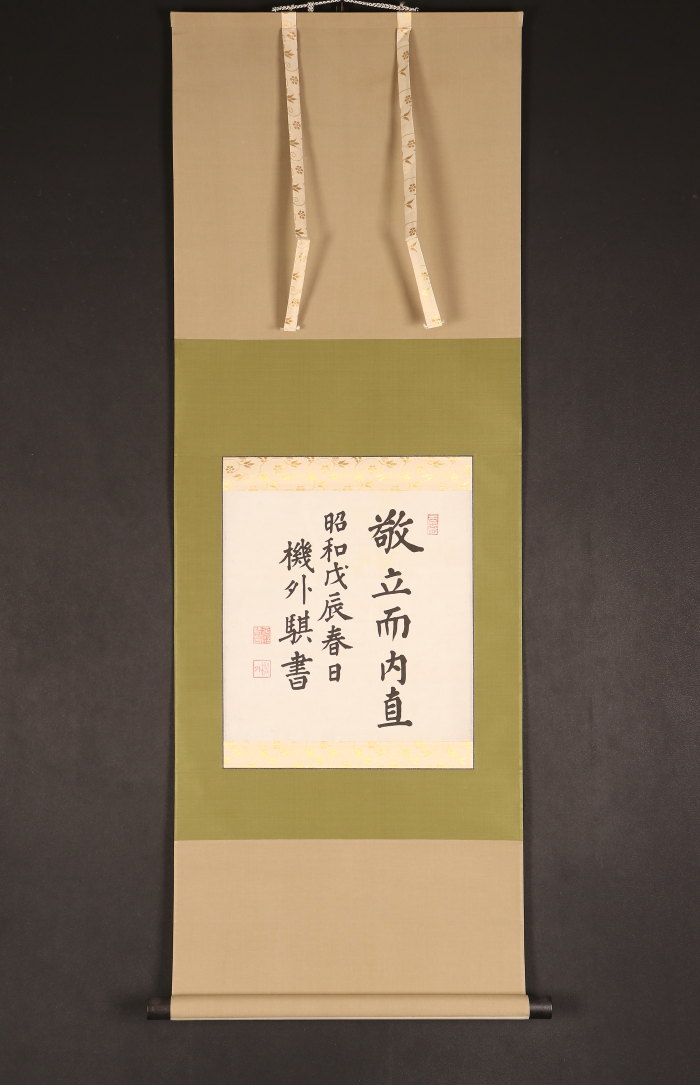 敬立而内直
昭和戊辰春日
機外騏書